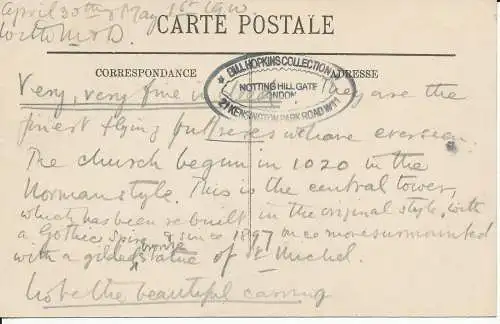 April 30th & May 1st 1910
With M & D.
CARTE POSTALE
CORRESPONDANCE
ADRESSE
BILL HOPKINS COLLECTION
NOTTING HILL GATE
LONDON
21 KENSINGTON PARK ROAD W11
Very, very fine They are the
finest flying buttresses we have ever seen.
The church begun in 1020 in the
Norman style. This is the central tower,
which has been rebuilt in the original style, with
a Gothic spire & since 1897 once more surmounted
with a gilded bronze statue of St Michel.
Note the beautiful carving